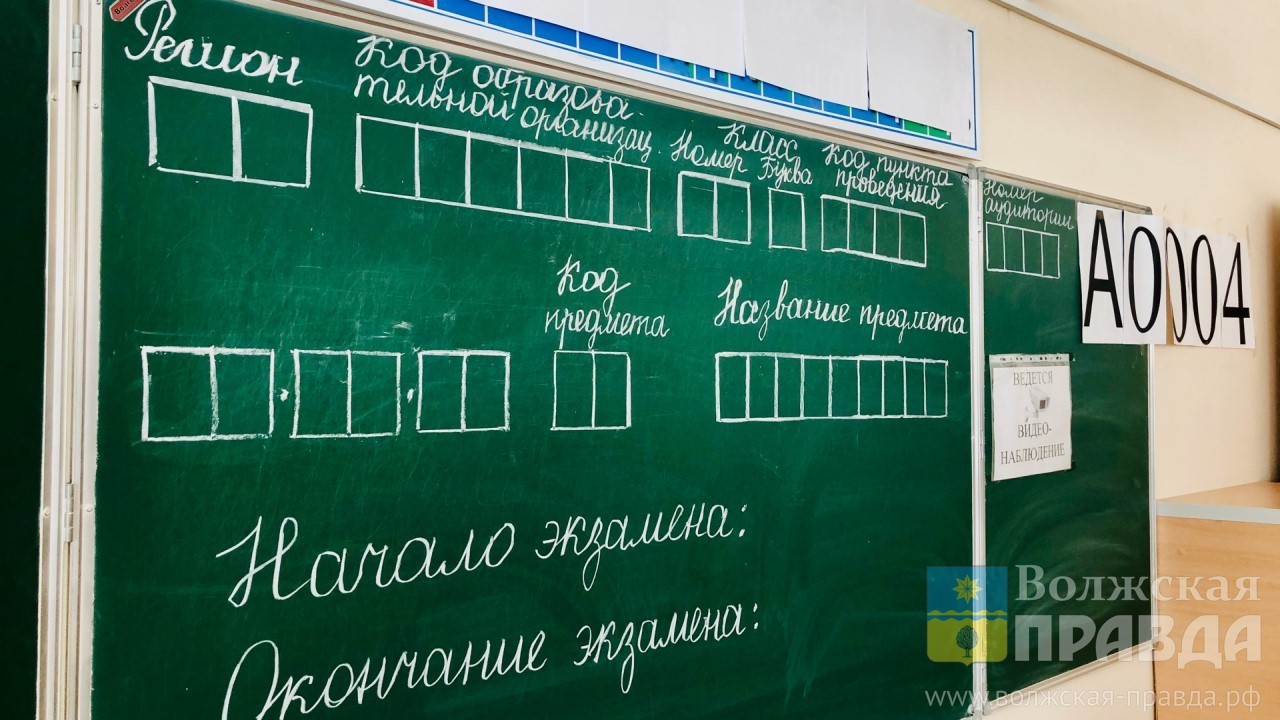 Регион
Код образова-
тельной организац.
Класс
Номер Буква
Код пункта
проведения
Номер
аудитории
А0004
Код
предмета
Название предмета
ВЕДЕТСЯ
ВИДЕО-
НАБЛЮДЕНИЕ
Начало экзамена:
Окончание экзамена:
Волжская
ПРАВДА
www.волжская-правда.рф